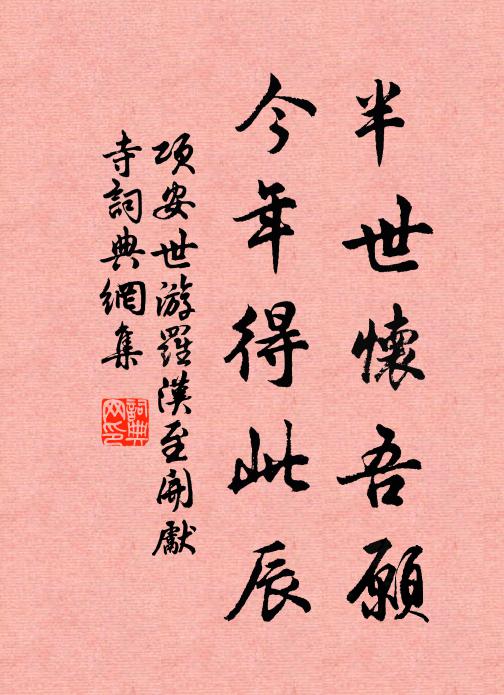 半世懷吾願
今年得此辰
項安世游羅漢至開獻
寺詞典網集
詞典網印